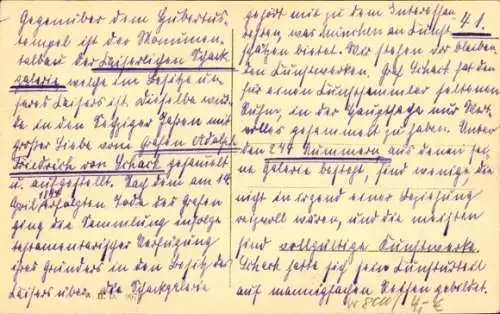 Gegenüber dem Hubertus-
tempel ist der Monumen-
talbau der Kaiserlichen Schack-
galerie welche im Besitze un-
seres Kaisers ist. Dieselbe wur-
de in den 50ziger Jahren mit
großer Liebe vom Grafen Adolph
Friedrich von Schack gesammelt
u. aufgestellt. Nach dem am 14.
April 1894 erfolgten Tode des Grafen
ging die Sammlung infolge
testamentarischer Verfügung
ihres Gründers in den Besitz des
Kaisers über. Die Schackgalerie
gehört mit zu dem Interessan-
testen, was München an Kunst- 41.
schätzen bietet. Wir stehen vor bleiben-
den Kunstwerken. Graf Schack hat den
für einen Kunstsammler seltenen
Ruhm, in der Hauptsache nur Wert-
volles gesammelt zu haben. Unter
den 277 Nummern aus denen sei-
ne Galerie besteht, sind wenige, die
nicht in irgend einer Beziehung
reizvoll wären, und die meisten
sind vollgültige Kunstwerke.
Schack hatte sich sein Kunsturteil
auf mannigfachen Reisen gebildet.
4,- €